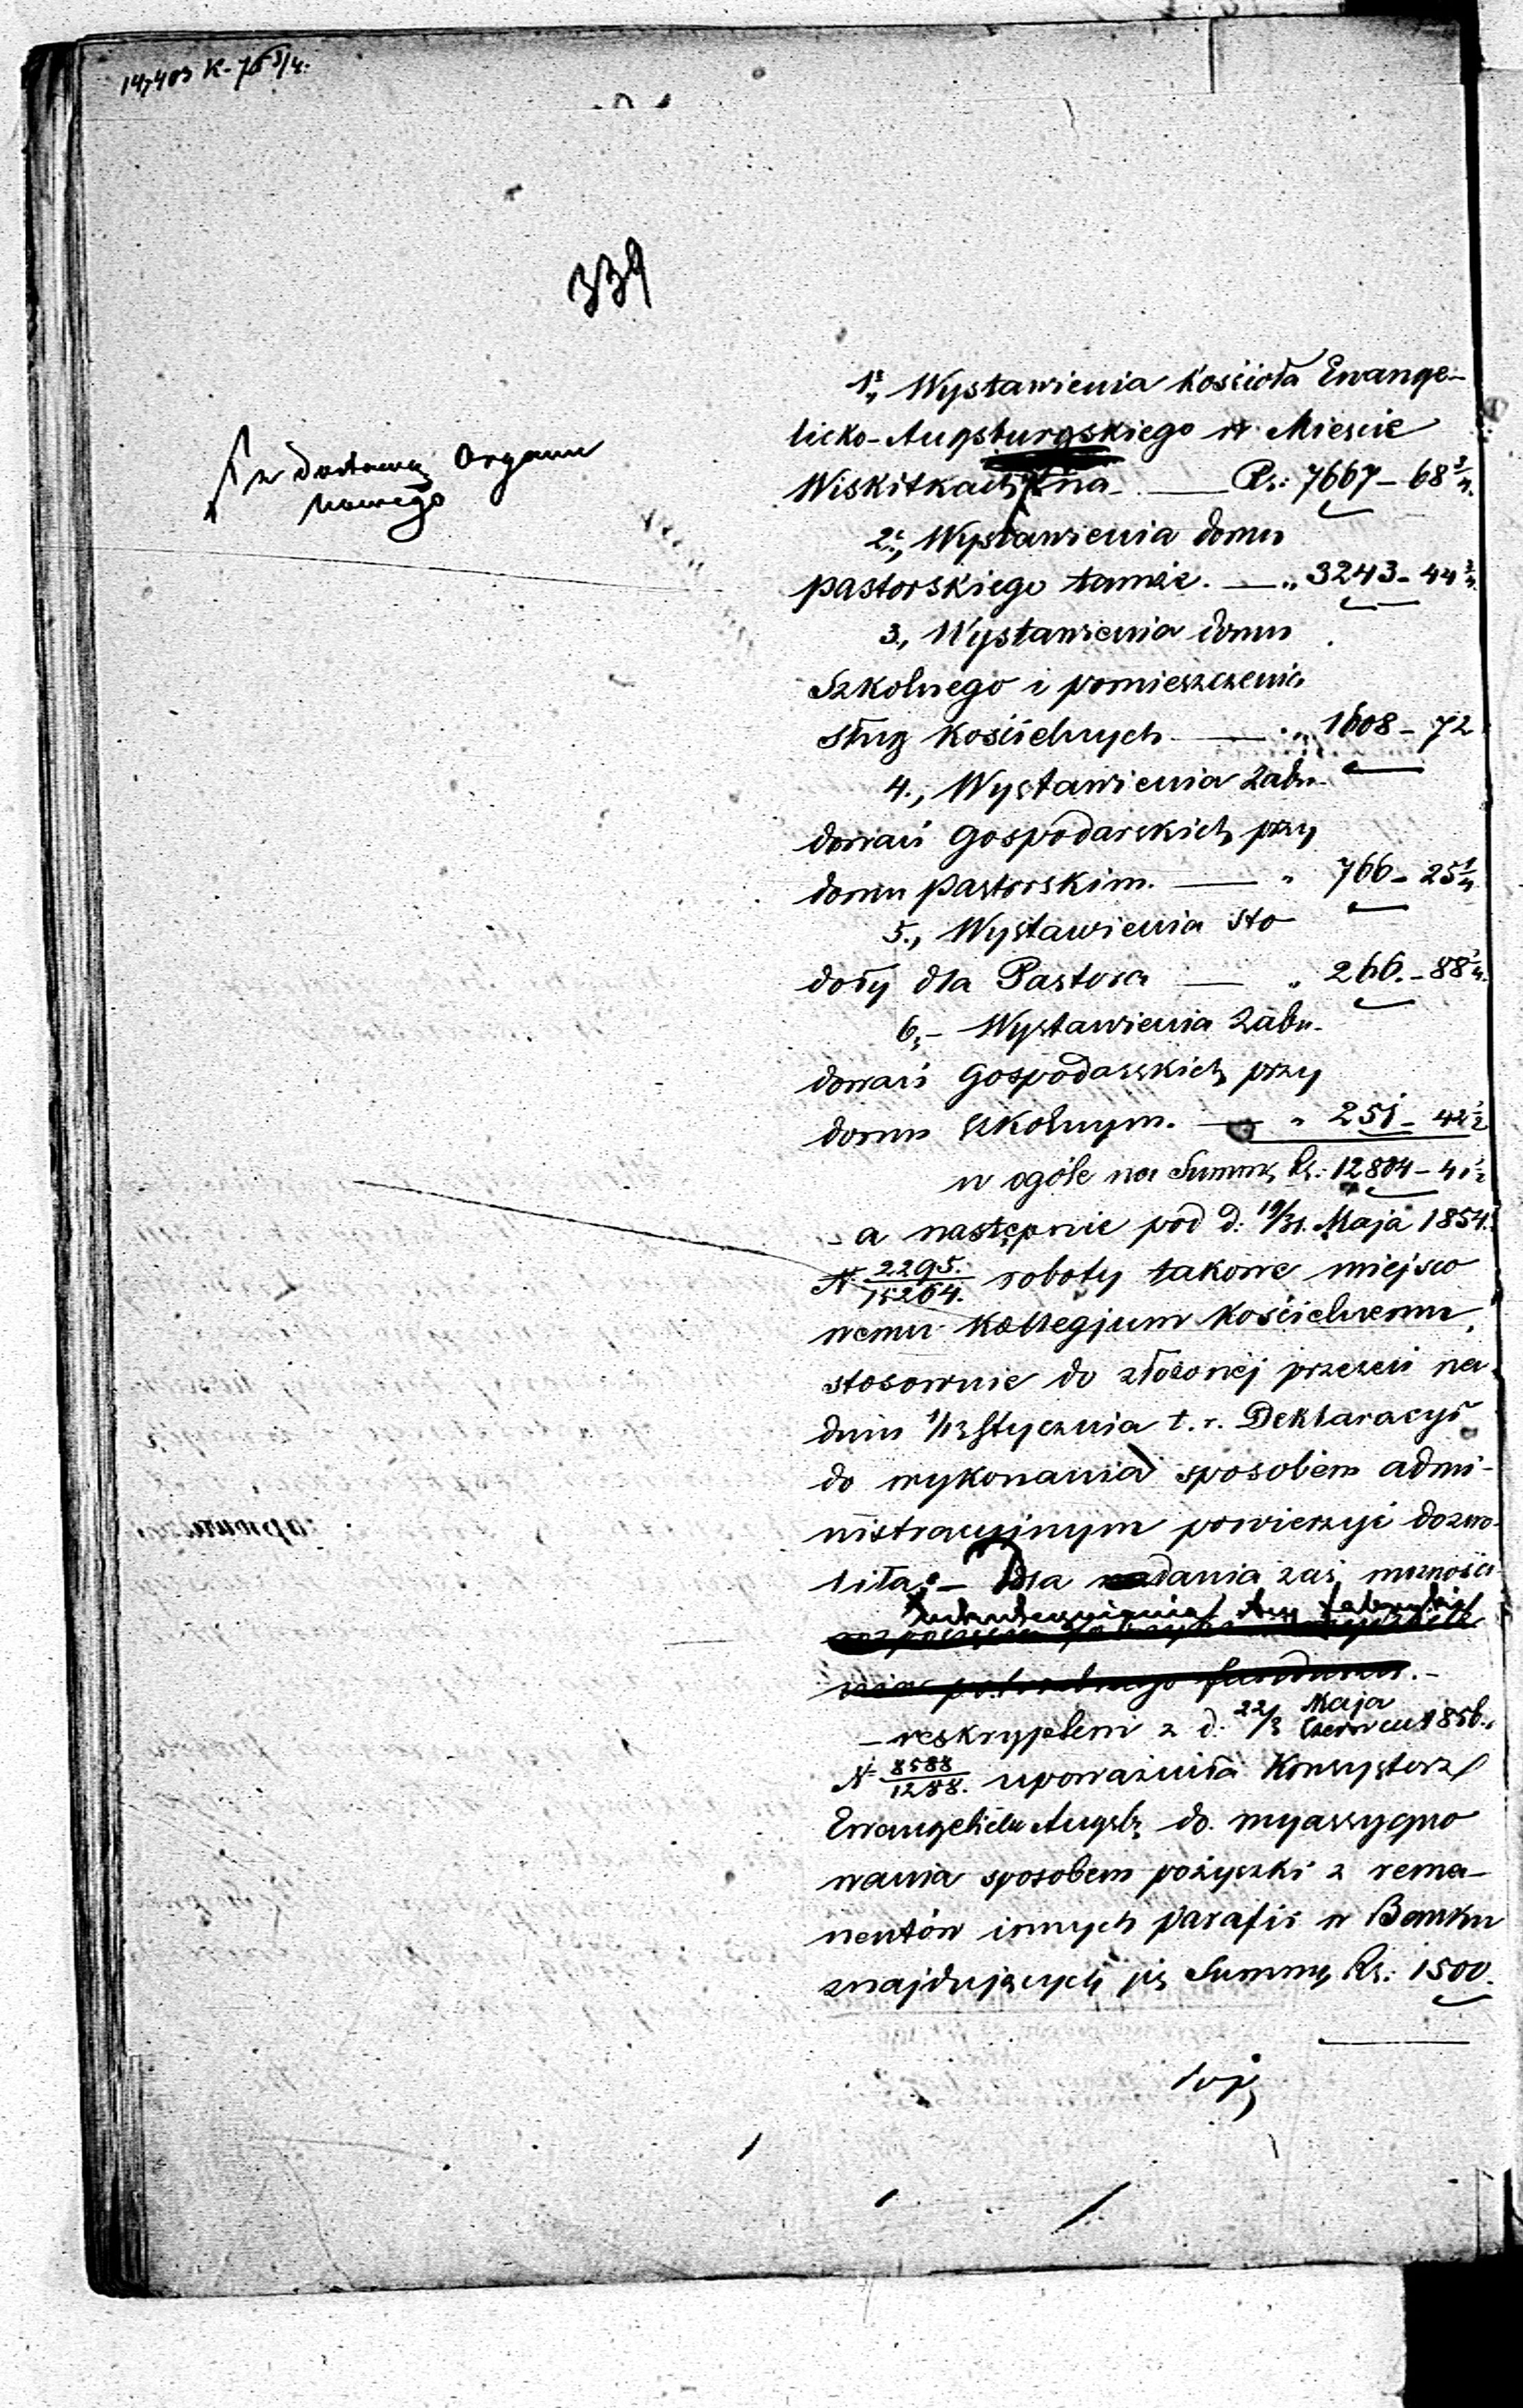 14,403 K-
339
z dostawą Organu
nowego
1º, Wystawienia kościoła Ewange-
licko-Augsburgskiego w Mieście
Wiskitkach na - Rs: 7667 - 68 3/4.
2º, Wystawienia domu
pastorskiego tamże. — „ 3243 - 44 3/4.
3., Wystawienia domu
Szkolnego i pomieszczenia
sług kościelnych — „ 1608 - 72
4., Wystawienia zabu-
dowań Gospodarskich przy
domu pastorskim. — „ 766 - 25 1/4
5., Wystawienia sto
doły dla Pastora — „ 266. - 88 1/4.
6, - Wystawienia zabu-
dowań Gospodarskich przy
domu szkolnym. — „ 251 - 42 1/2
w ogóle na Summę Rs: 12804 - 41 1/2
- a następnie pod d: 19/31. Maja 1854.
N. 2295./15264. roboty takowe miejsco
wemu Kollegjum kościelnemu,
stosownie do złożonej przezeń na
dniu 1/13 Stycznia t. r. Deklaracyi
do wykonania sposobem admi-
nistracyjnym powierzyć dozwo-
liła. - Dla nadania zaś możności
uskutecznienia tej fabryki
potrzebnego funduszu. -
- reskryptem z d. 22/3 Maja/Czerwca 1856.,
N. 8588/1288. upoważniła Konsystorz
Ewangelicko Augsb. do wyassygno
wania sposobem pożyczki z rema-
nentów innych parafii w Banku
znajdujących się Summy Rs: 1500.